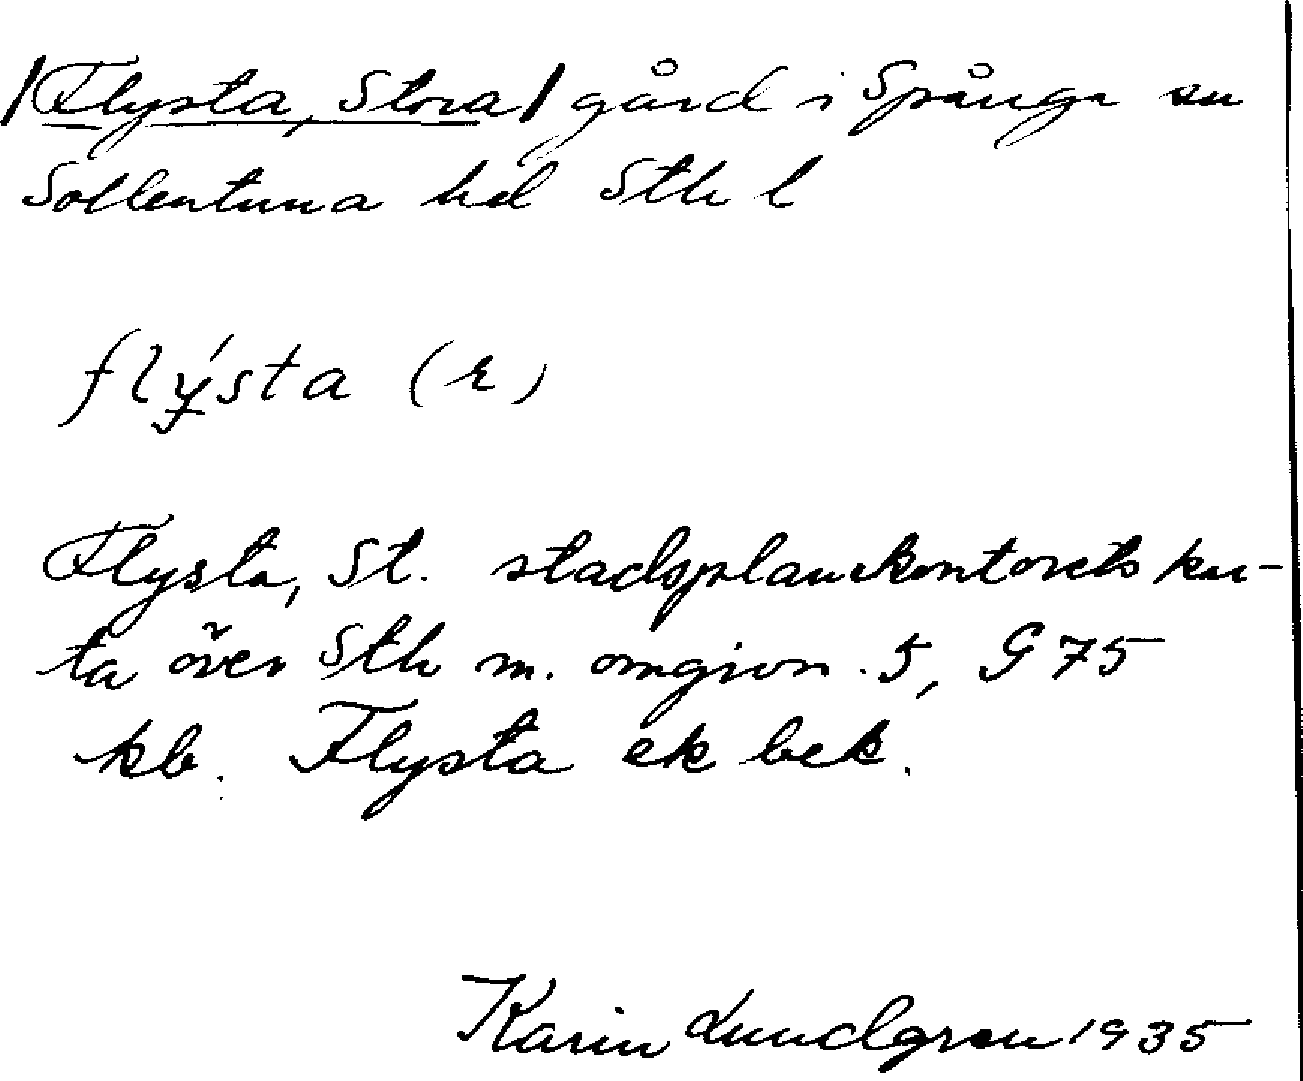 /Flysta, Stora/ gård i Spånga sn
Sollentuna hd Sth l
flý̵sta (r)
Flysta, St. stadsplanekontorets kar-
ta över Sth m. omgivn. 5, G 75
kb. Flysta ek bek.
Karin Lundgren 1935